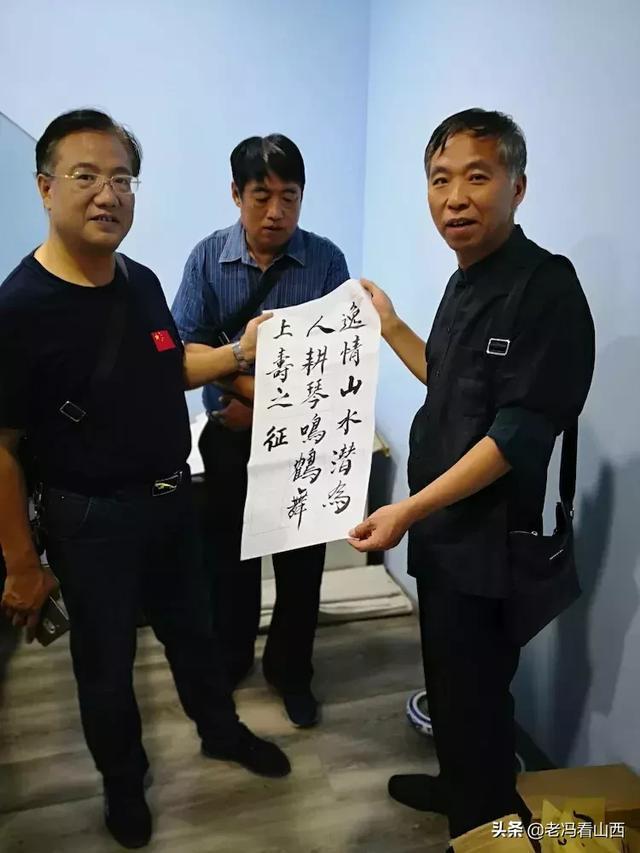 逸情山水潜為
人耕琴鳴鶴舞
上壽之征
头条@老冯看山西